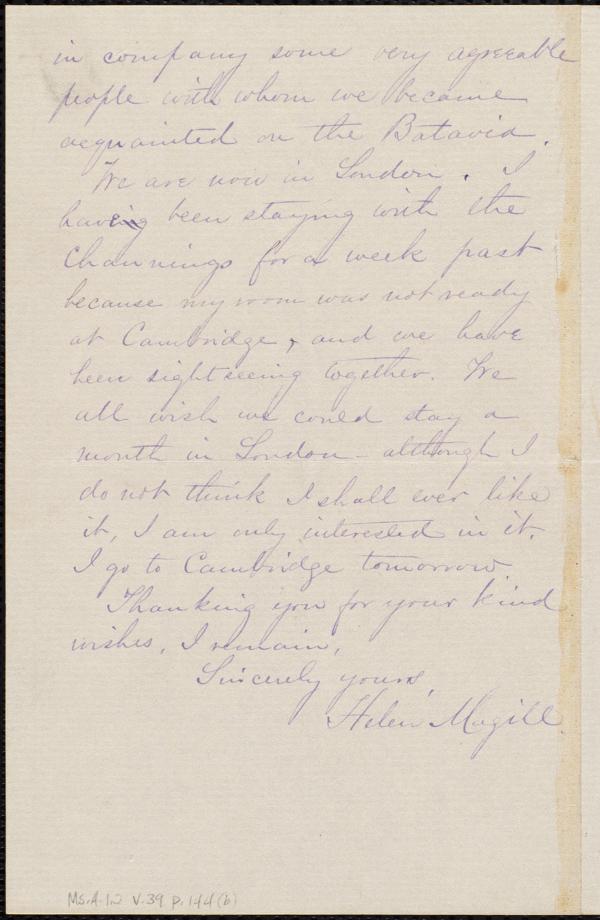 in company some very agreeable
people with whom we became
acquainted on the Batavia.
We are now in London. I
having been staying with the
Channings for a week past
because my room was not ready
at Cambridge, and we have
been sight seeing together. We
all wish we could stay a
month in London - although I
do not think I shall ever like
it, I am only interested in it.
I go to Cambridge tomorrow
Thanking you for your kind
wishes, I remain,
Sincerely yours,
Helen Magill.
Ms.A.1.2 V.39 p.144(b)